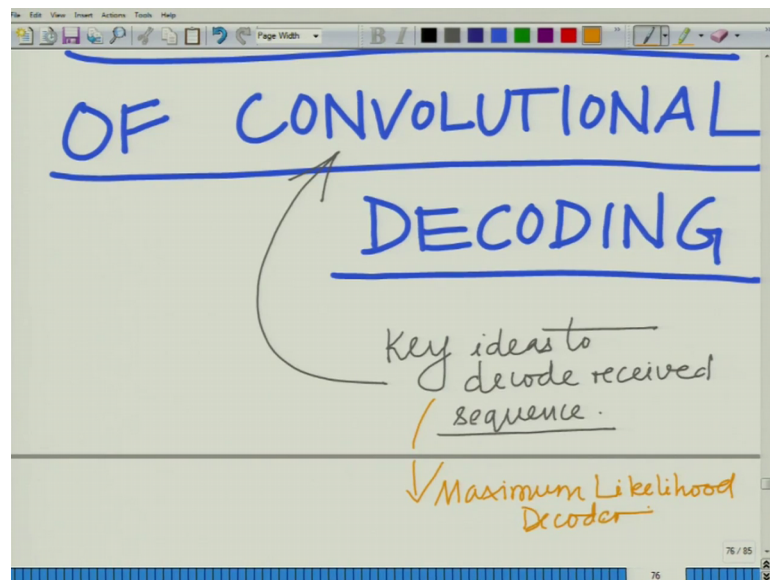 File Edit View Insert Actions Tools Help
Page Width
B I
OF CONVOLUTIONAL
DECODING
Key ideas to
decode received
sequence.
Maximum Likelihood
Decoder
76 / 85
76